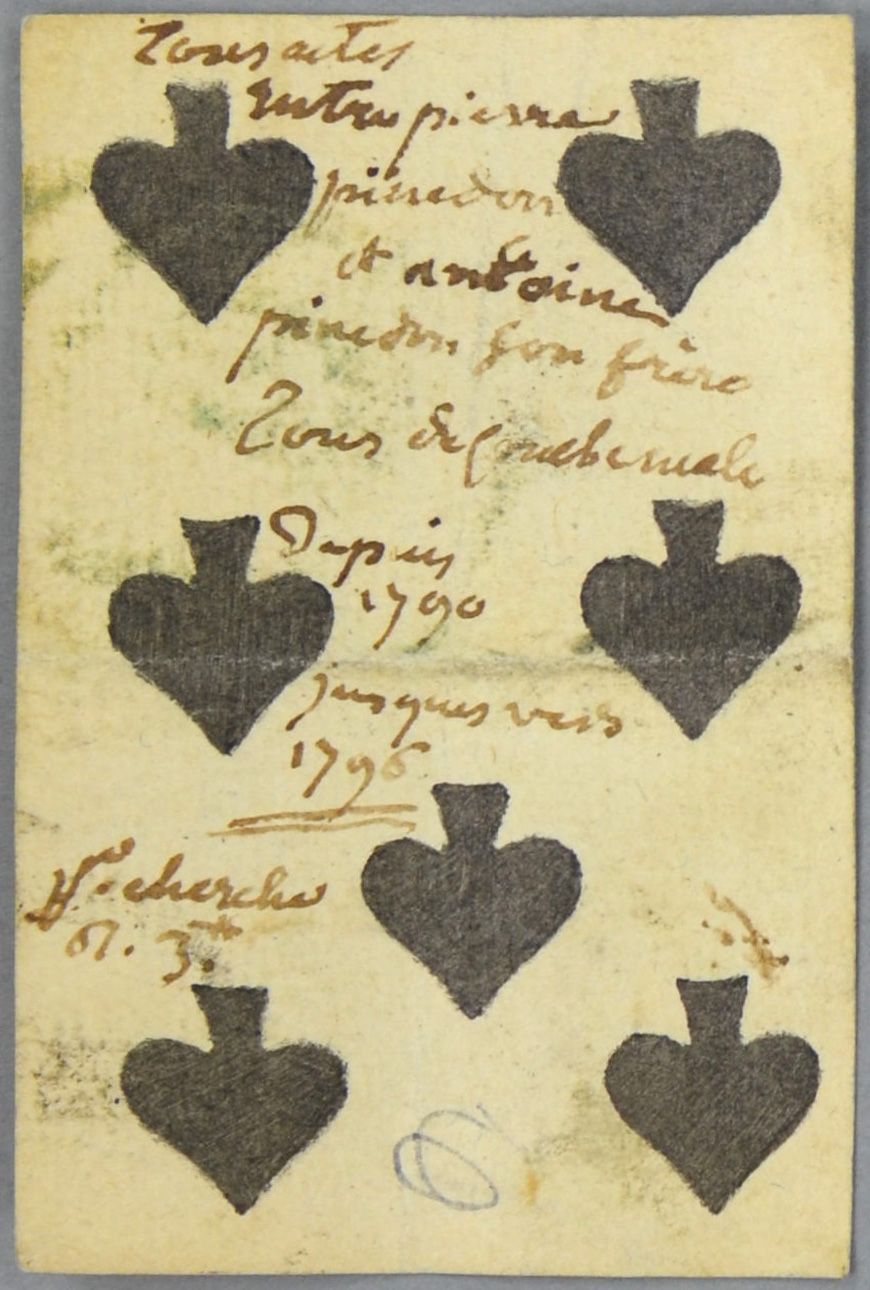 Tous actes
Entre pierre
pinedon
et antoine
pinedon son frère
Tous de
Depuis
1790
jusques vers
1796
Rcherche
3